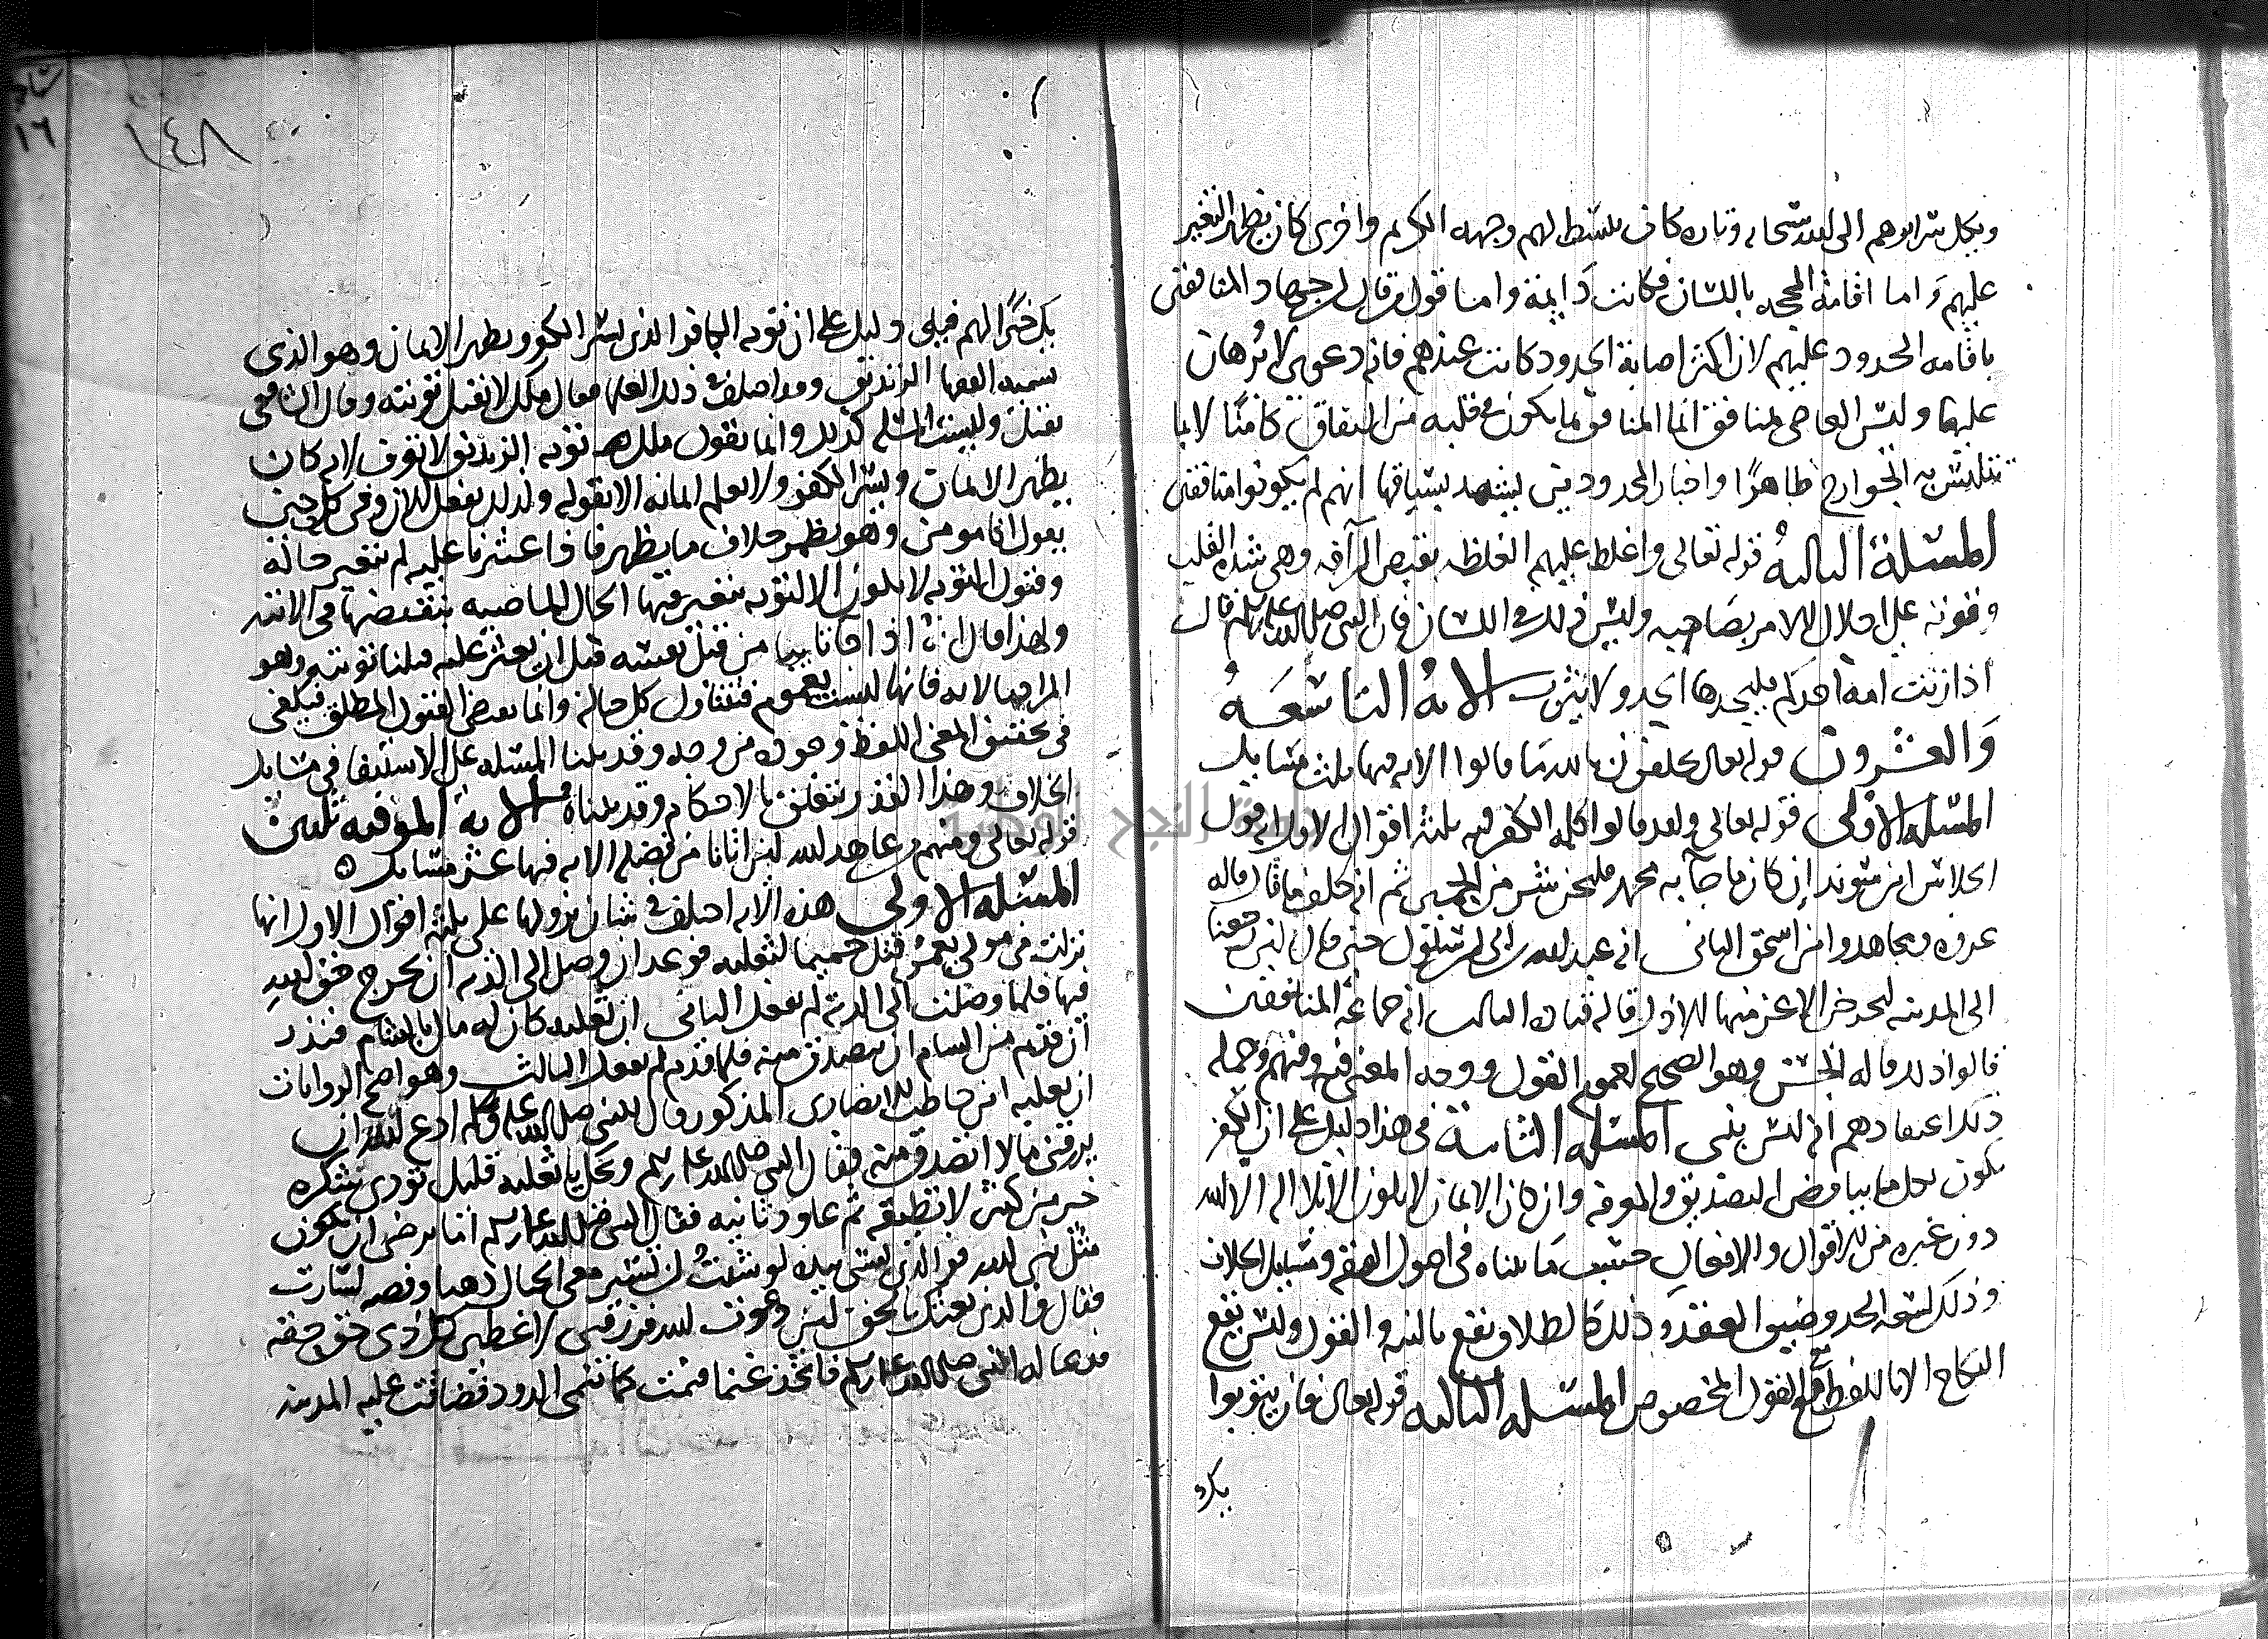 ويكل سرايرهم الى الله سبحانه وتاره كان ينبسط لهم وجهه الكريم واخرى كان يظهر التغير
عليهم واما اقامة الحجه باللسان فكانت دايمة واما قول من قال ان جهاد المنافقين
باقامه الحدود عليهم لان اكثر اصابة الحدود كانت عندهم فانه دعوى لا برهان
عليها وليس العاصى بمنافق انما المنافق بما يكون فى قلبه من النفاق كامنا لا بما
تتلبس به الجوارح ظاهرا واخبار المحدودين يشهد بسياقها انهم لم يكونوا منافقين
المسئلة الثالثة قوله تعالى واغلظ عليهم الغلظه نقيض الرآفه وهى شده القلب
وقوته على احلال الامر بصاحبه وليس ذلك فى اللسان فان النبى صلى الله عليه وسلم قال
اذا زنت امة احدكم فليجلدها الحد ولا يثرب الايه التاسعه
والعشرون قوله تعالى يحلفون بالله ما قالوا الايه فيها ثلث مسايل
المسئلة الاولى قوله تعالى ولقد قالوا كلمه الكفر فيه ثلثة اقوال الاول انه قول
الجلاس ابن سويد ان كان ما جآ به محمد فلنحن شر من الحمير ثم انه حلف ما قال قاله
عروه ومجاهد وابن اسحق الثانى انه عبد الله بن ابى بن سلول حين قال لئن رجعنا
الى المدينه ليخرجن الاعز منها الاذل قاله قتاده الثالث انه جماعة المنافقين
قالوا ذلك قاله الحسن وهو الصحيح لعموم القول ووجود المعنى فيه وفيهم وجمله
ذلك اعتقادهم انه ليس بنبى المسئله الثانية فى هذا دليل على ان الكفر
يكون بكل ما يناقض التصديق والمعرفه وان كان الايمان لا يكون الا بلا اله الا الله
دون غيره من الاقوال والافعال حسب ما بيناه فى اصول الفقه ومسايل الخلاف
وذلك لسعة الحل وضيق العقد وذلك كالطلاق يقع بالنيه والقول وليس يقع
النكاح الا باللفظ مع القول المخصوص المسئله الثالثه قوله تعالى فان يتوبوا
يك
١٤٨
١٦
يك خيرا لهم فيه دليل على ان توبه الكافر الذى يسر الكفر ويظهر الايمان وهو الذى
يسميه الفقها الزنديق وقد اختلف فى ذلك العلما فقال ملك لا تقبل توبته وقال الشافعى
تقبل وليست المسئلة كذلك وانما يقول ملك توبه الزنديق لا تعرف لانه كان
يظهر الايمان ويسر الكفر ولا يعلم ايمانه الا بقوله وكذلك يفعل الان وفى كل حين
يقول انا مومن وهو يضمر خلاف ما يظهر فاذا عثرنا عليه لم تتغير حاله
وقبول التوبه لا يكون الا لتوبه تتغير فيها الحال الماضيه بنقيضها فى الاتيه
ولهذا قال انه اذا جا تايبا من قبل نفسه قبل ان يعثر عليه قبلنا توبته وهو
المراد بالايه فانها ليست بعموم فتتناول كل حاله وانما تقتضى القبول المطلق فيكفى
فى تحقيق المعنى اللفظ وجوده من وجه وقد بينا المسئله على الاستيفا فى مسايل
الخلاف وهذا القدر يتعلق بالاحكام وقد بيناه الايه الموفيه ثلثين
قوله تعالى ومنهم من عاهد الله لئن اتانا من فضله الايه فيها عشر مسايل ه
المسئله الاولى هذه الايه اختلف فى شان نزولها على ثلثة اقوال الاول انها
نزلت فى مولى لعمر قتل حميما لثعلبه فوعد ان وصل الى الديه ان يخرج حق الله
فيها فلما وصلت اليه الديه لم يفعل الثانى ان ثعلبه كان له مال بالشام فنذر
ان قدم من الشام ان يتصدق منه فلما قدم لم يفعل الثالث وهو اصح الروايات
ان ثعلبه ابن حاطب الانصارى المذكور قال للنبى صلى الله عليه وسلم ادع الله ان
يرزقنى مالا اتصدق منه فقال النبى صلى الله عليه وسلم ويحك يا ثعلبه قليل تودى شكره
خير من كثير لا تطيقه ثم عاود ثانيه فقال النبى صلى الله عليه وسلم اما ترضى ان تكون
مثل نبى الله فوالذى نفسى بيده لو شئت ان تسير معى الجبال ذهبا وفضه لسارت
فقال والذى بعثك بالحق لئن دعوت الله فرزقنى لاعطين كل ذى حق حقه
فدعا له النبى صلى الله عليه وسلم فاتخذ غنما فنمت كما تنمى الدود فضاقت عليه المدينه